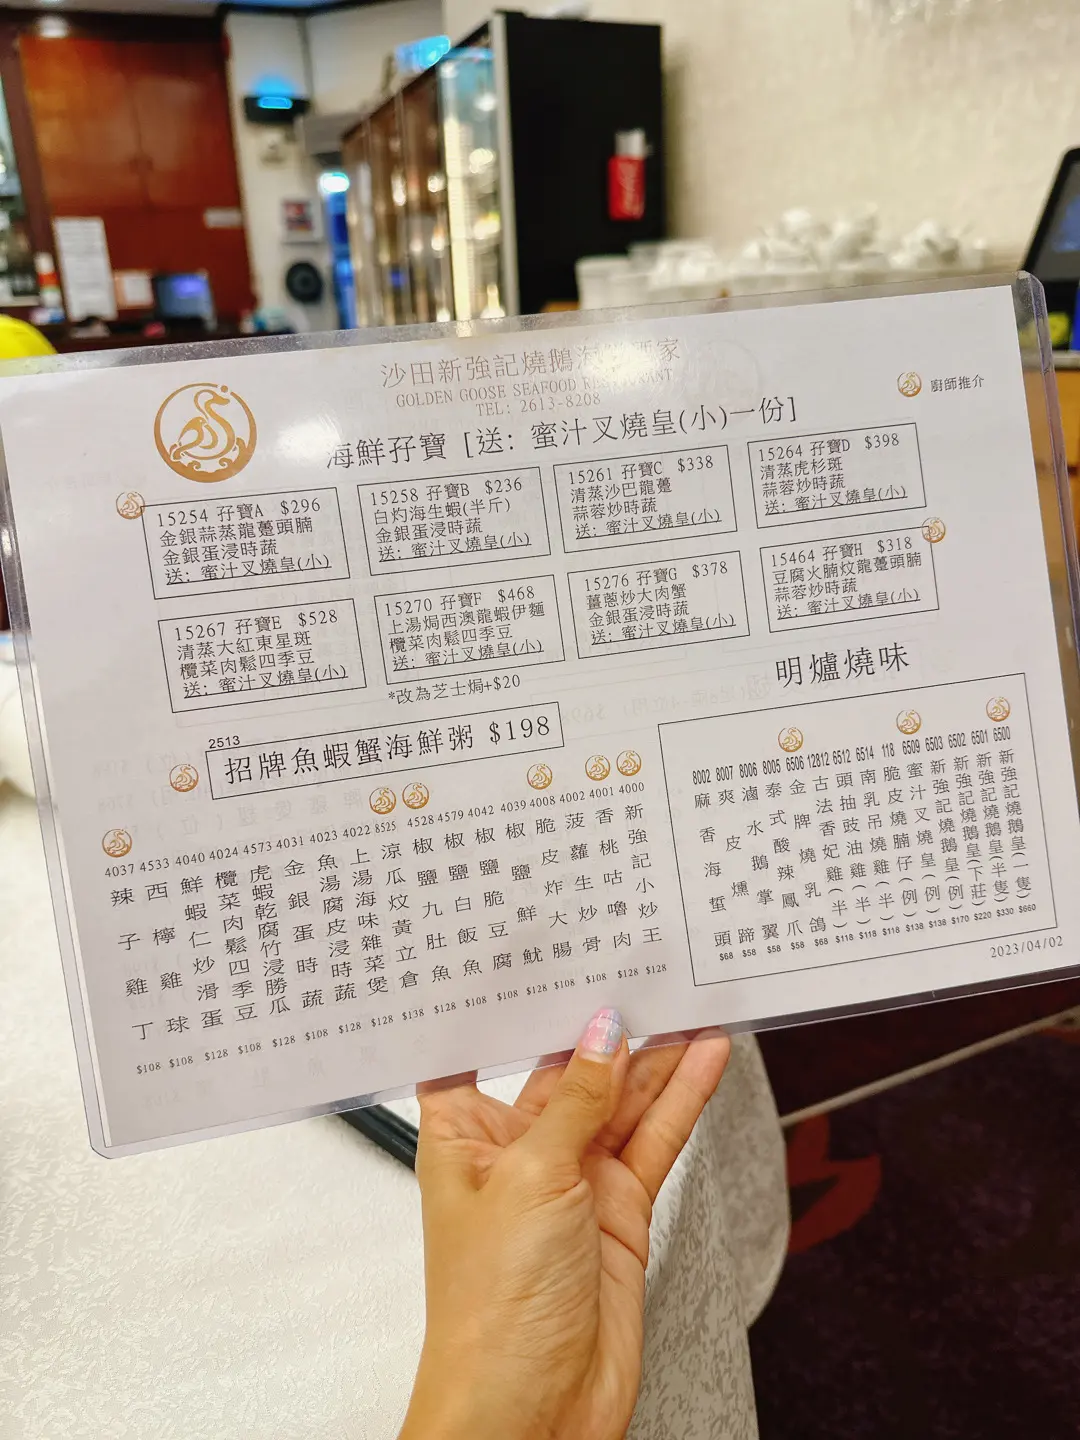 沙田新強記燒鵝海鮮酒家
GOLDEN GOOSE SEAFOOD RESTAURANT
TEL: 2613-8208
廚師推介
海鮮孖寶 [送: 蜜汁叉燒皇(小)一份]
15254 孖寶A $296
金銀蒜蒸龍躉頭腩
金銀蛋浸時蔬
送: 蜜汁叉燒皇(小)
15258 孖寶B $236
白灼海生蝦(半斤)
金銀蛋浸時蔬
送: 蜜汁叉燒皇(小)
15261 孖寶C $338
清蒸沙巴龍躉
蒜蓉炒時蔬
送: 蜜汁叉燒皇(小)
15264 孖寶D $398
清蒸虎杉斑
蒜蓉炒時蔬
送: 蜜汁叉燒皇(小)
15267 孖寶E $528
清蒸大紅東星斑
欖菜肉鬆四季豆
送: 蜜汁叉燒皇(小)
15270 孖寶F $468
上湯焗西澳龍蝦伊麵
欖菜肉鬆四季豆
送: 蜜汁叉燒皇(小)
*改為芝士焗+$20
15276 孖寶G $378
薑蔥炒大肉蟹
金銀蛋浸時蔬
送: 蜜汁叉燒皇(小)
15464 孖寶H $318
豆腐火腩炆龍躉頭腩
蒜蓉炒時蔬
送: 蜜汁叉燒皇(小)
2513
招牌魚蝦蟹海鮮粥 $198
4000 新強記小炒王 $128
4001 香桃咕嚕肉 $128
4002 菠蘿生炒骨 $108
4008 脆皮炸大腸
4039 椒鹽鮮魷
4042 椒鹽脆豆腐
4579 椒鹽白飯魚
4528 椒鹽九肚魚
8525 涼瓜炆黃立倉 $138
4022 上湯海味雜菜煲 $128
4023 魚湯腐皮浸時蔬 $128
4031 金銀蛋時蔬 $108
4573 虎蝦乾腐竹浸勝瓜 $128
4024 欖菜肉鬆四季豆 $108
4040 鮮蝦仁炒滑蛋 $128
4533 西檸雞球 $108
4037 辣子雞丁 $108
明爐燒味
6500 新強記燒鵝皇(一隻) $660
6501 新強記燒鵝皇(半隻) $330
6502 新強記燒鵝皇(下莊) $220
6503 新強記燒鵝皇(例) $170
6509 蜜汁叉燒皇(例) $138
118 脆皮燒腩仔(例) $138
6514 南乳吊燒雞(半) $118
6512 頭抽豉油雞(半) $118
12812 古法香妃雞(半) $118
6506 金牌燒乳鴿 $68
8005 泰式酸辣鳳爪 $58
8006 滷水鵝掌翼 $58
8007 爽皮燻蹄 $58
8002 麻香海蜇頭 $68
2023/04/02